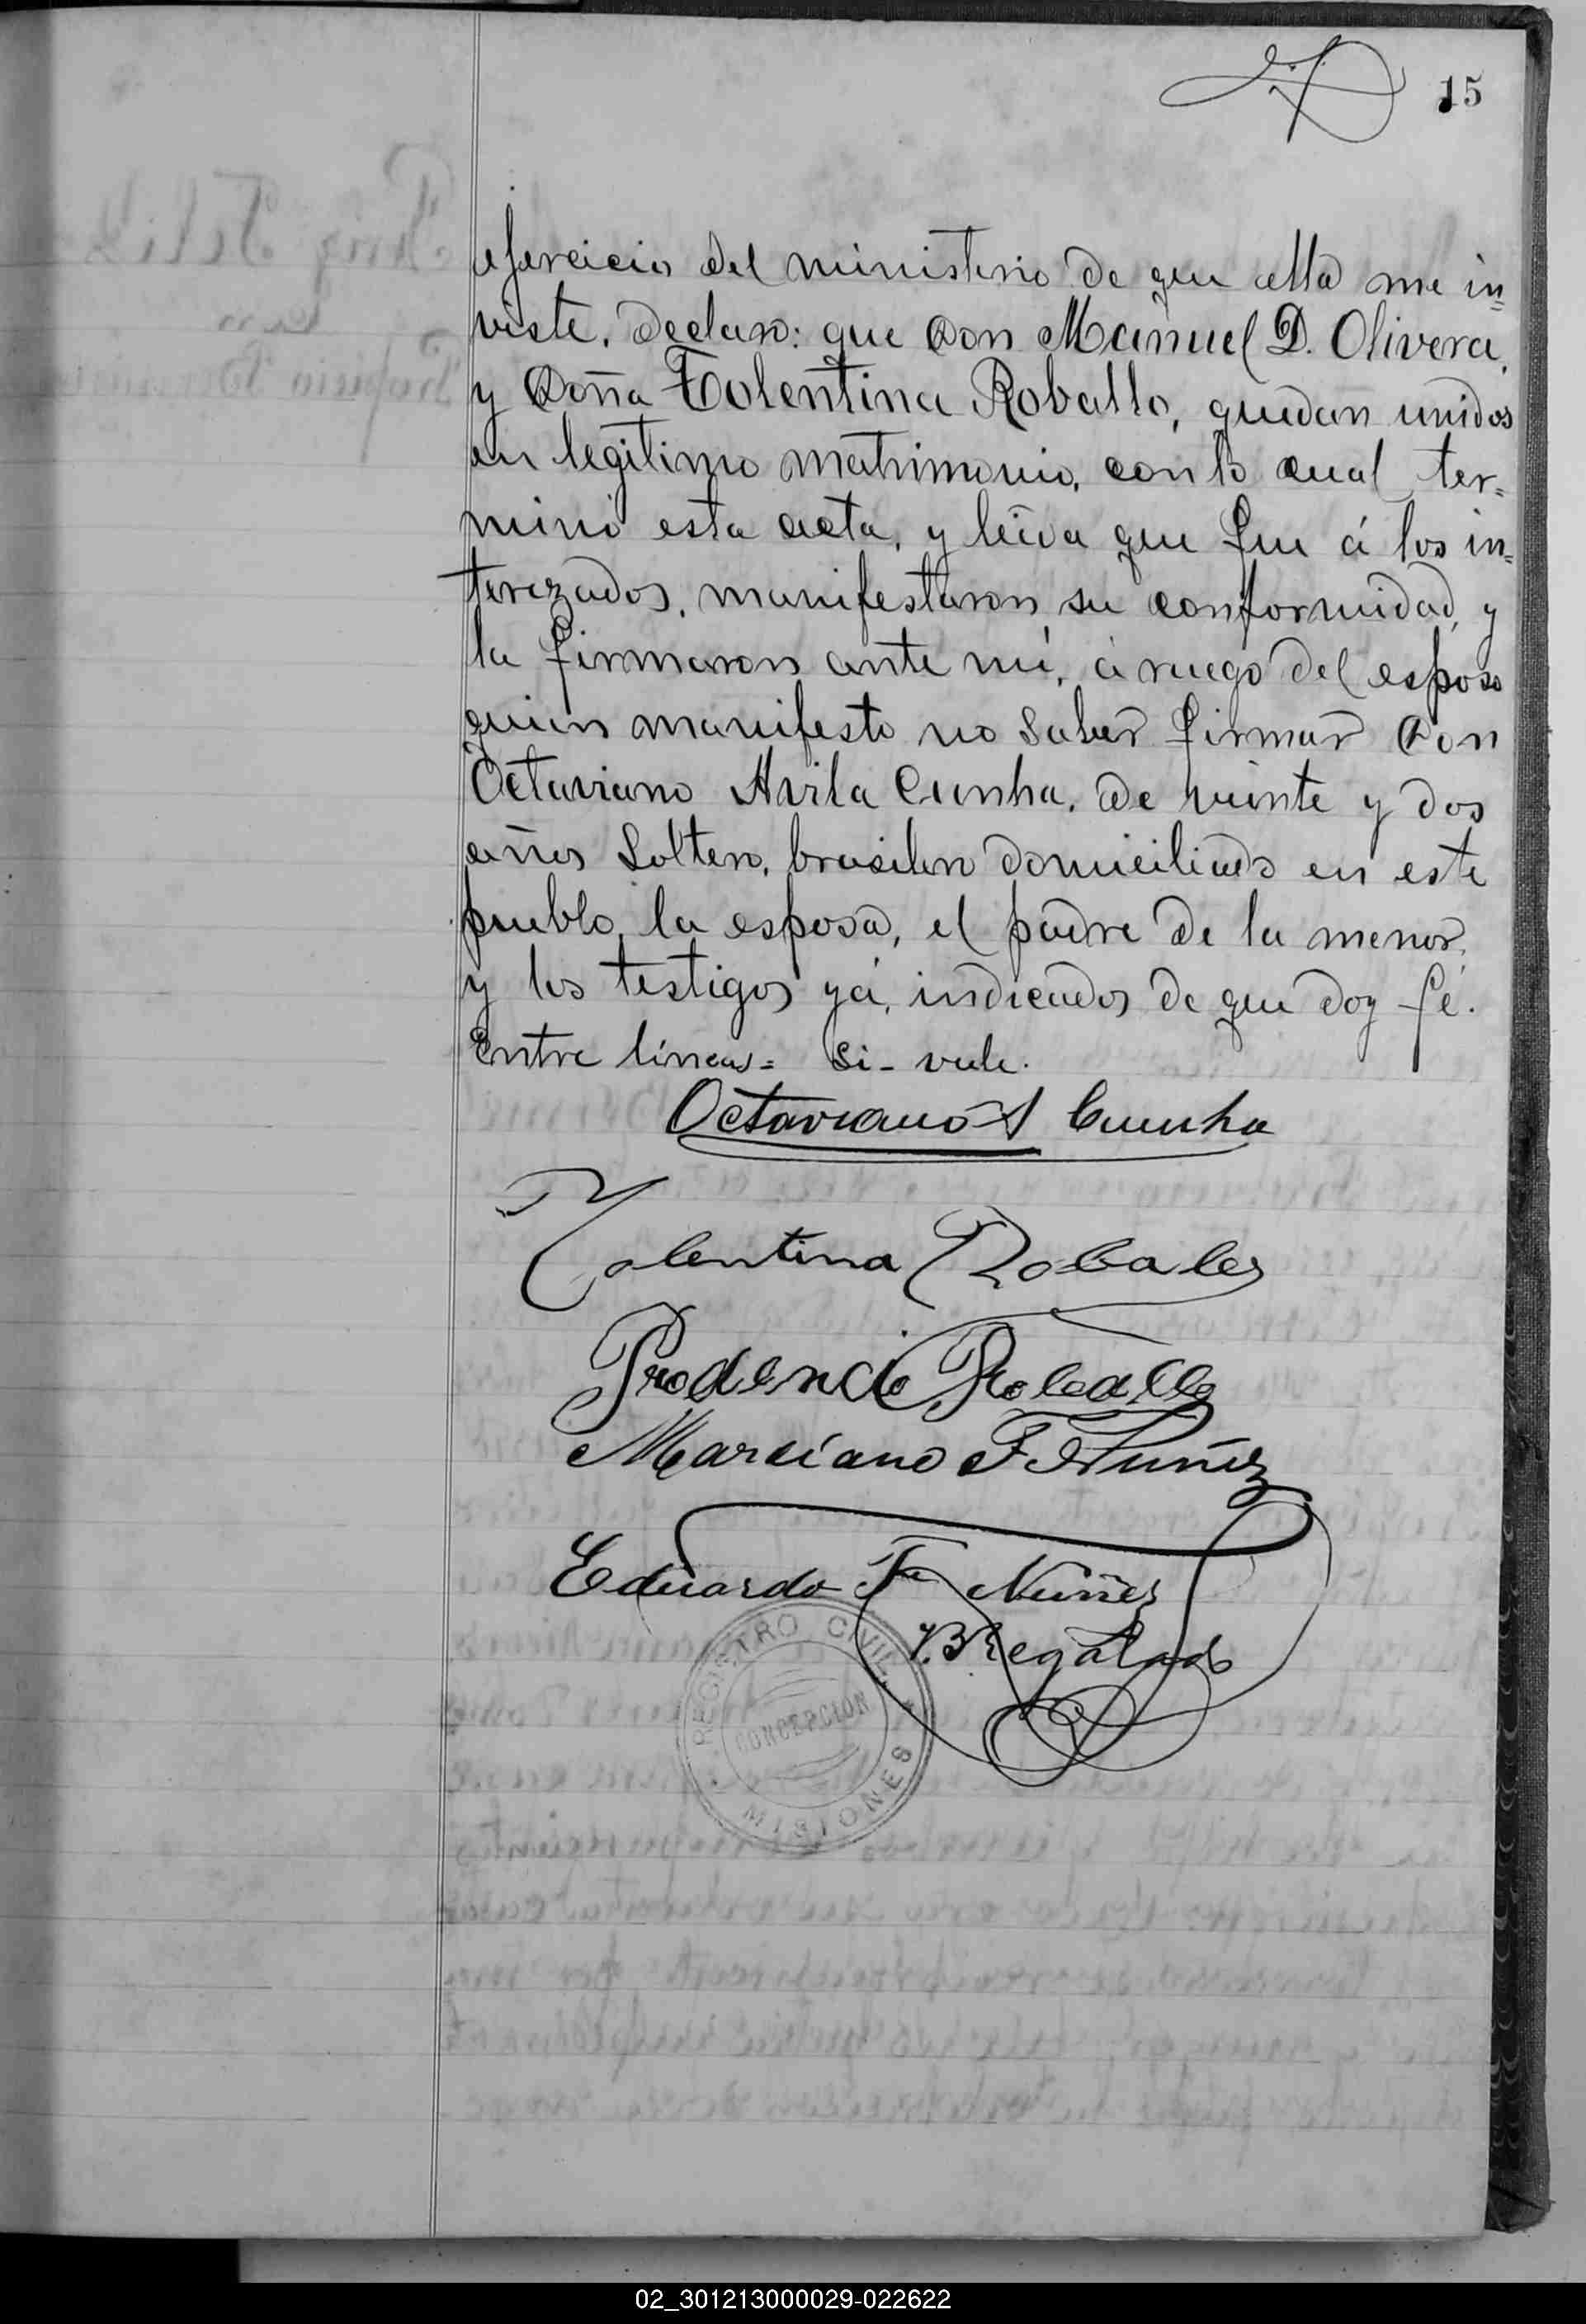 15
ejercicio del ministerio de que ella me in=
viste, declaro: que Don Manuel D. Olivera,
y Doña Tolentina Roballo, quedan unidos
en legitimo matrimonio, con lo cual ter=
minó esta acta, y leida que fue á los in=
terezados, manifestaron su conformidad, y
la firmaron ante mi, á ruego del esposo
quien manifesto no saber firmar Don
Octaviano Avila Cunha, de veinte y dos
años soltero, brasilero domiciliado en este
pueblo, la esposa, el padre de la menor,
y los testigos yá, indicados de que doy fé.
Entre lineas= Si- vale.
Octaviano A Cunha
Tolentina Robales
Prodencio Roballo
Marciano F. Nuñez
Eduardo Fz Nuñez
V. B Regalado
REGISTRO CIVIL
CONCEPCION
MISIONES
02_301213000029-022622